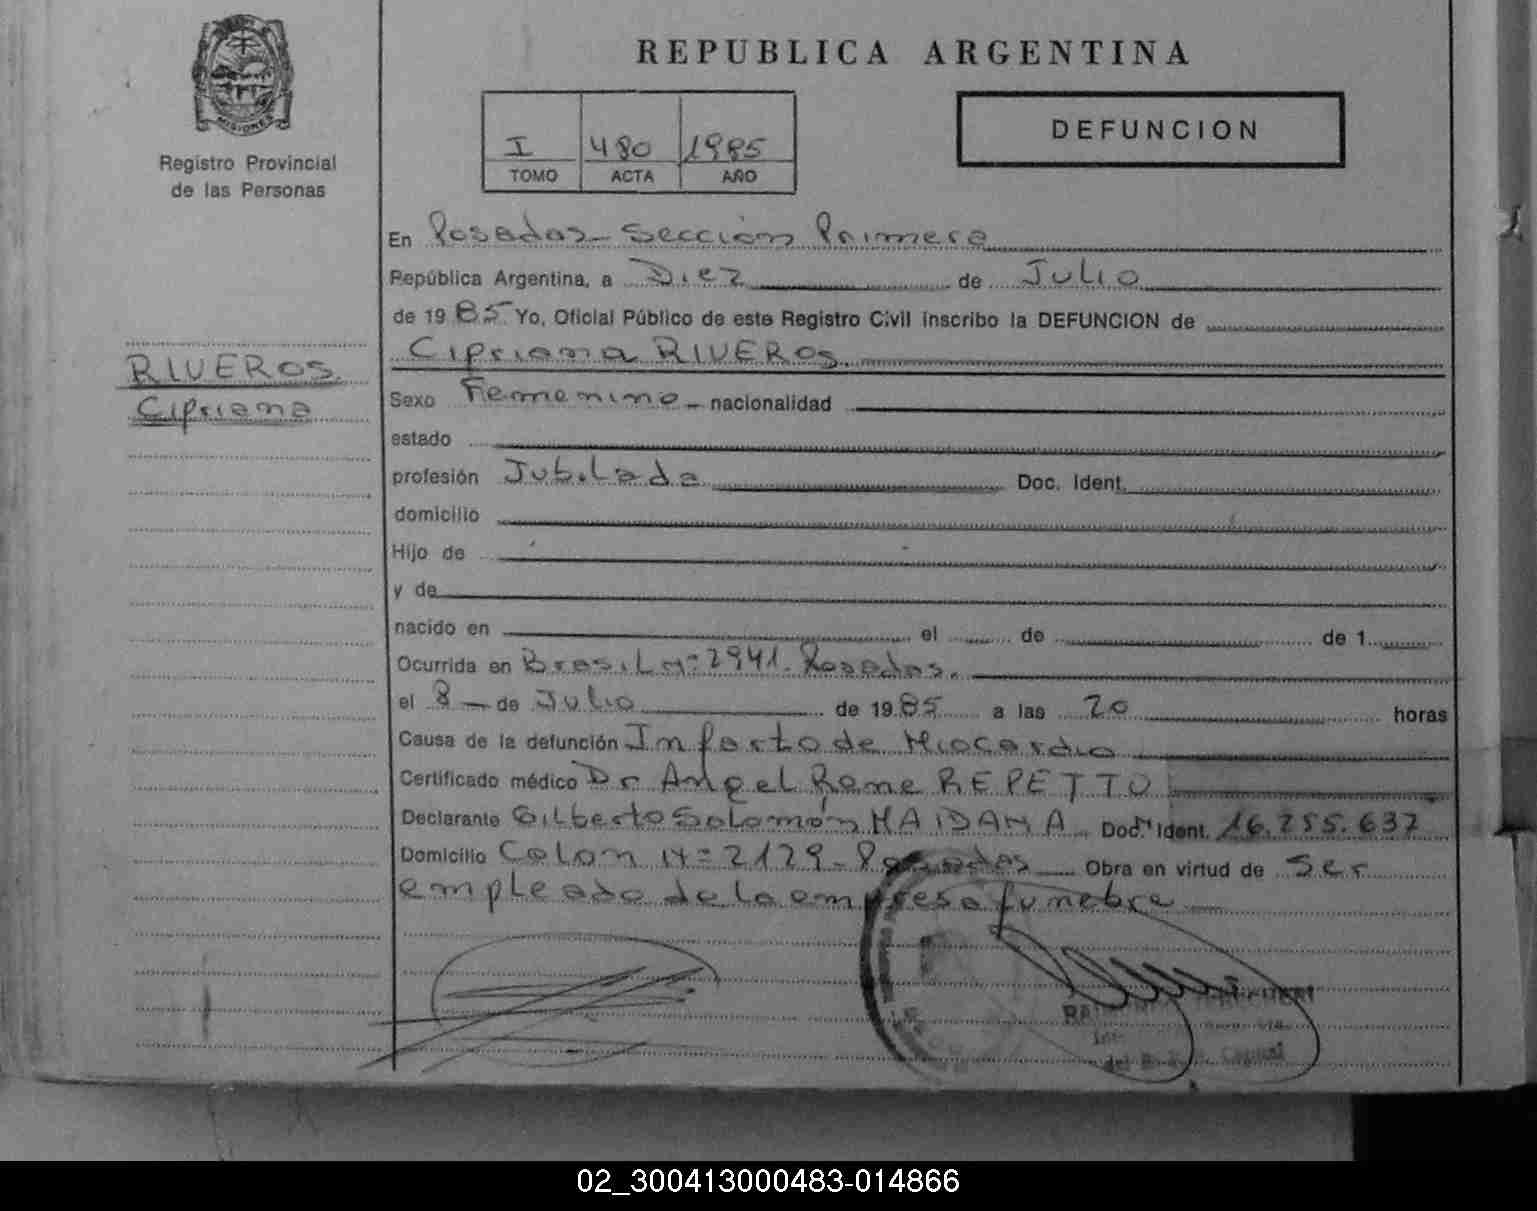 MISIONES
Registro Provincial
de las Personas
RIVEROS
Cipriana
REPUBLICA ARGENTINA
I 480 1985
TOMO ACTA AÑO
DEFUNCION
En Posadas - Sección Primera
República Argentina, a Diez de Julio
de 1985 Yo, Oficial Público de este Registro Civil inscribo la DEFUNCION de
Cipriana RIVEROS.
Sexo Femenino - nacionalidad
estado
profesión Jubilada Doc. Ident.
domicilio
Hijo de
y de
nacido en el de de 1
Ocurrida en Brasil Nº 2941. Posadas.
el 8 - de Julio de 1985 a las 20 horas
Causa de la defunción Infarto de Miocardio
Certificado médico Dr Angel Rene REPETTO
Declarante Gilberto Solomón MAIDANA Doc. Ident. 16.255.637
Domicilio Colon Nº 2129 - Posadas Obra en virtud de Ser
empleado de la empresa funebre
Capital
02_300413000483-014866